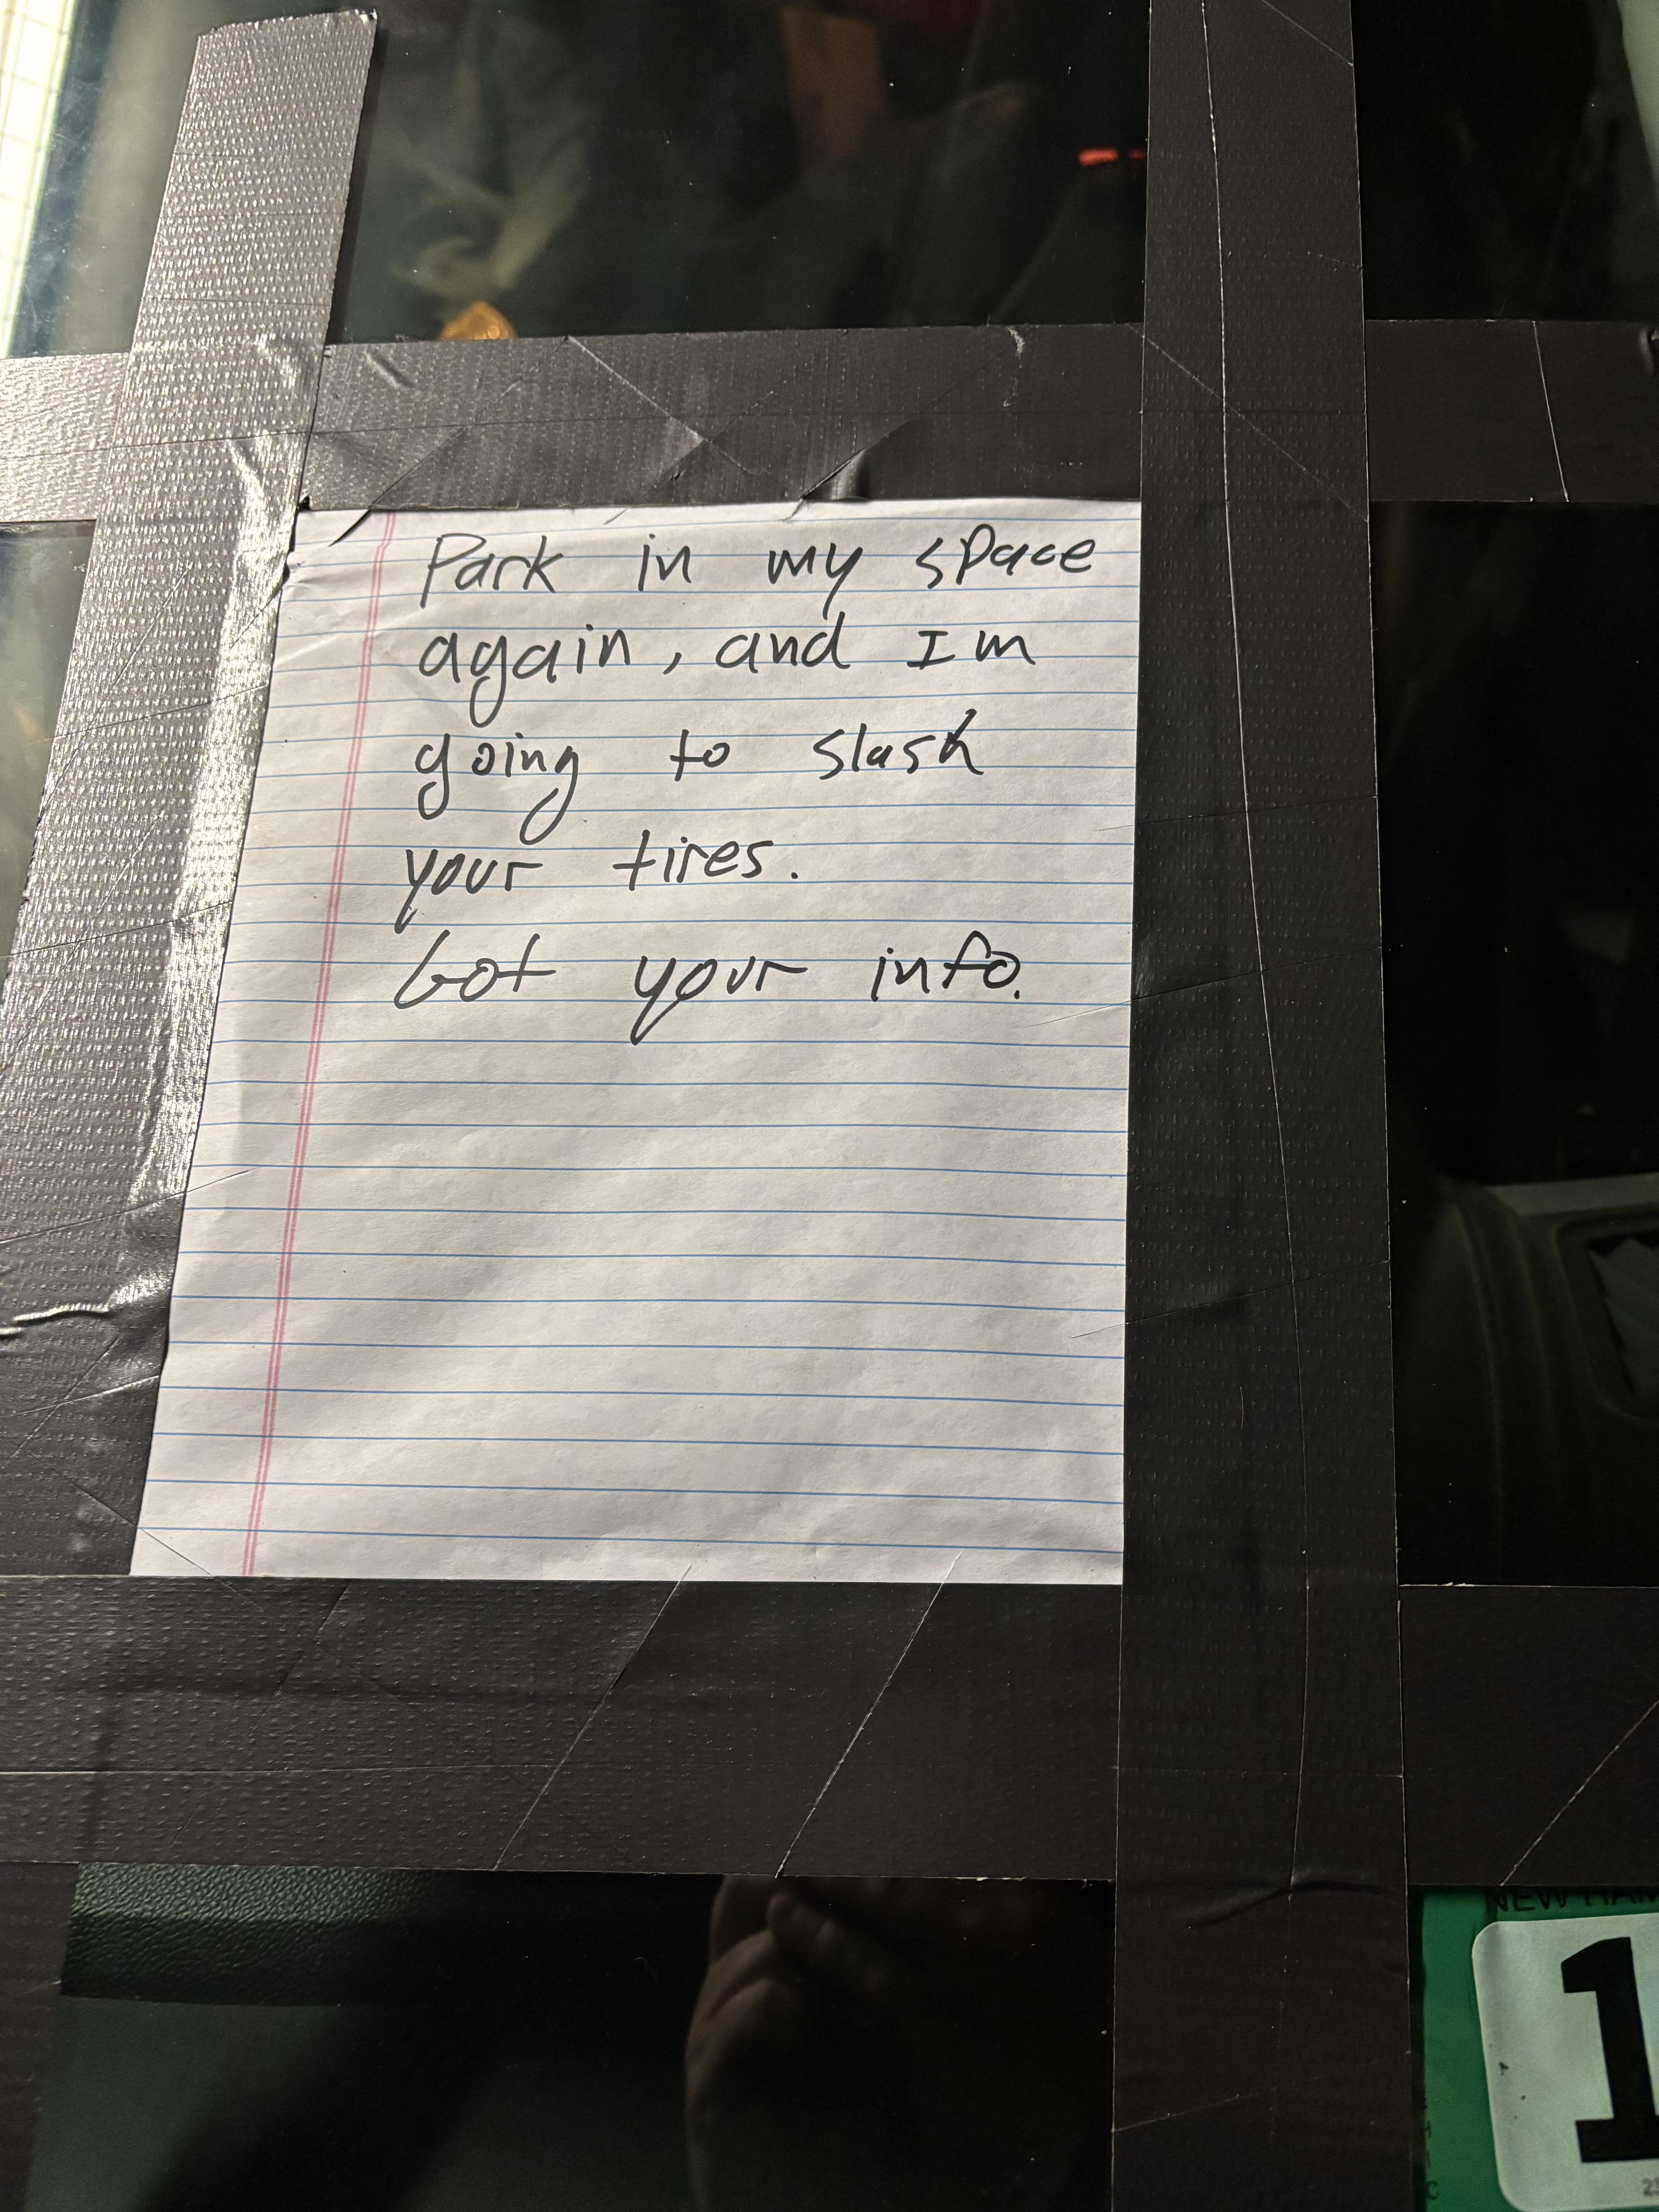 Park in my space
again, and Im
going to slash
your tires.
Got your info.
NEW HAM
1